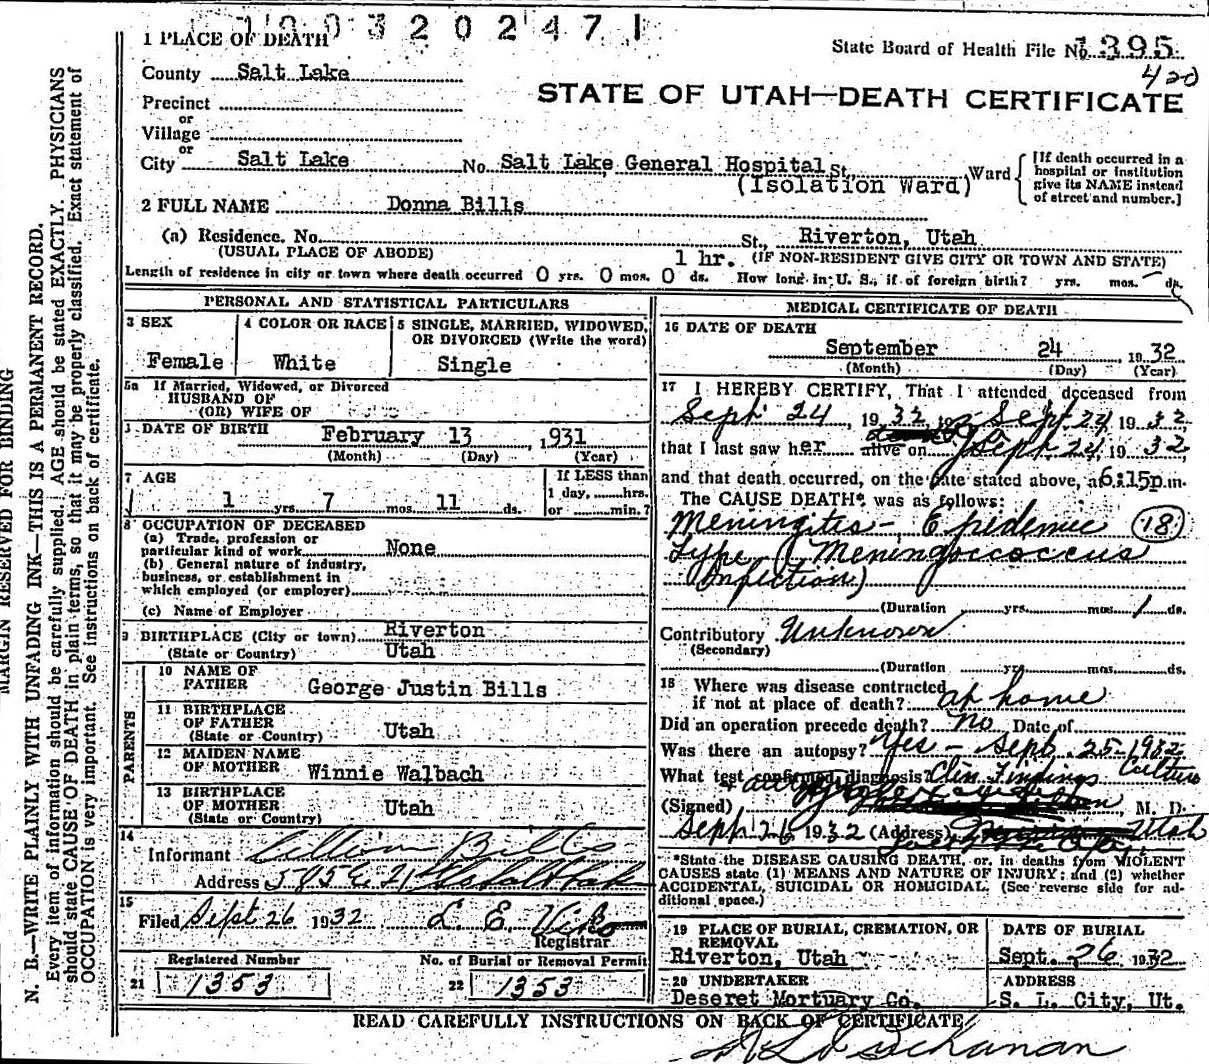 1003202471
1 PLACE OF DEATH
State Board of Health File No. 1395
420
County Salt Lake
STATE OF UTAH—DEATH CERTIFICATE
Precinct
or
Village
or
City Salt Lake No. Salt Lake General Hospital St., Ward
(Isolation Ward)
[If death occurred in a
hospital or institution
give its NAME instead
of street and number.]
2 FULL NAME Donna Bills
(a) Residence. No. St., Riverton, Utah
(USUAL PLACE OF ABODE) 1 hr. (IF NON-RESIDENT GIVE CITY OR TOWN AND STATE)
Length of residence in city or town where death occurred 0 yrs. 0 mos. 0 ds. How long in U. S., if of foreign birth? yrs. mos. ds.
PERSONAL AND STATISTICAL PARTICULARS
3 SEX
Female
4 COLOR OR RACE
White
5 SINGLE, MARRIED, WIDOWED,
OR DIVORCED (Write the word)
Single
5a If Married, Widowed, or Divorced
HUSBAND OF
(OR) WIFE OF
DATE OF BIRTH February 13, 1931
(Month) (Day) (Year)
7 AGE
1 yrs. 7 mos. 11 ds.
If LESS than
1 day, hrs.
or min.?
8 OCCUPATION OF DECEASED
(a) Trade, profession or
particular kind of work None
(b) General nature of industry,
business, or establishment in
which employed (or employer)
(c) Name of Employer
9 BIRTHPLACE (City or town) Riverton
(State or Country) Utah
PARENTS
10 NAME OF
FATHER George Justin Bills
11 BIRTHPLACE
OF FATHER
(State or Country) Utah
12 MAIDEN NAME
OF MOTHER Winnie Walbach
13 BIRTHPLACE
OF MOTHER
(State or Country) Utah
14
Informant Bills
Address 585 E. 21
15
Filed Sept 26 1932 L. E. Viko
Registrar
Registered Number
21 1353
No. of Burial or Removal Permit
22 1353
MEDICAL CERTIFICATE OF DEATH
16 DATE OF DEATH
September 24, 1932
(Month) (Day) (Year)
17 I HEREBY CERTIFY, That I attended deceased from
Sept 24, 1932, to Sept 24, 1932
that I last saw her alive on Sept 24, 1932,
and that death occurred, on the date stated above, at 6:15p.m.
The CAUSE DEATH* was as follows:
Meningitis - Epidemic (18)
Type (Meningococcus
Infection)
(Duration yrs. mos. 1 ds.
Contributory Unknown
(Secondary)
(Duration yrs. mos. ds.
18 Where was disease contracted
if not at place of death? at home
Did an operation precede death? No Date of
Was there an autopsy? Yes - Sept. 25-1932
What test confirmed diagnosis? Clin. Findings Culture
(Signed) M. D.
Sept 26 1932 (Address) Utah
*State the DISEASE CAUSING DEATH, or, in deaths from VIOLENT
CAUSES state (1) MEANS AND NATURE OF INJURY; and (2) whether
ACCIDENTAL, SUICIDAL OR HOMICIDAL. (See reverse side for ad-
ditional space.)
19 PLACE OF BURIAL, CREMATION, OR
REMOVAL
Riverton, Utah
DATE OF BURIAL
Sept. 26 1932
20 UNDERTAKER
Deseret Mortuary Co.
ADDRESS
S. L. City, Ut.
READ CAREFULLY INSTRUCTIONS ON BACK OF CERTIFICATE
Buchanan
MARGIN RESERVED FOR BINDING
N. B.—WRITE PLAINLY WITH UNFADING INK—THIS IS A PERMANENT RECORD.
Every item of information should be carefully supplied. AGE should be stated EXACTLY. PHYSICIANS
should state CAUSE OF DEATH in plain terms, so that it may be properly classified. Exact statement of
OCCUPATION is very important. See instructions on back of certificate.